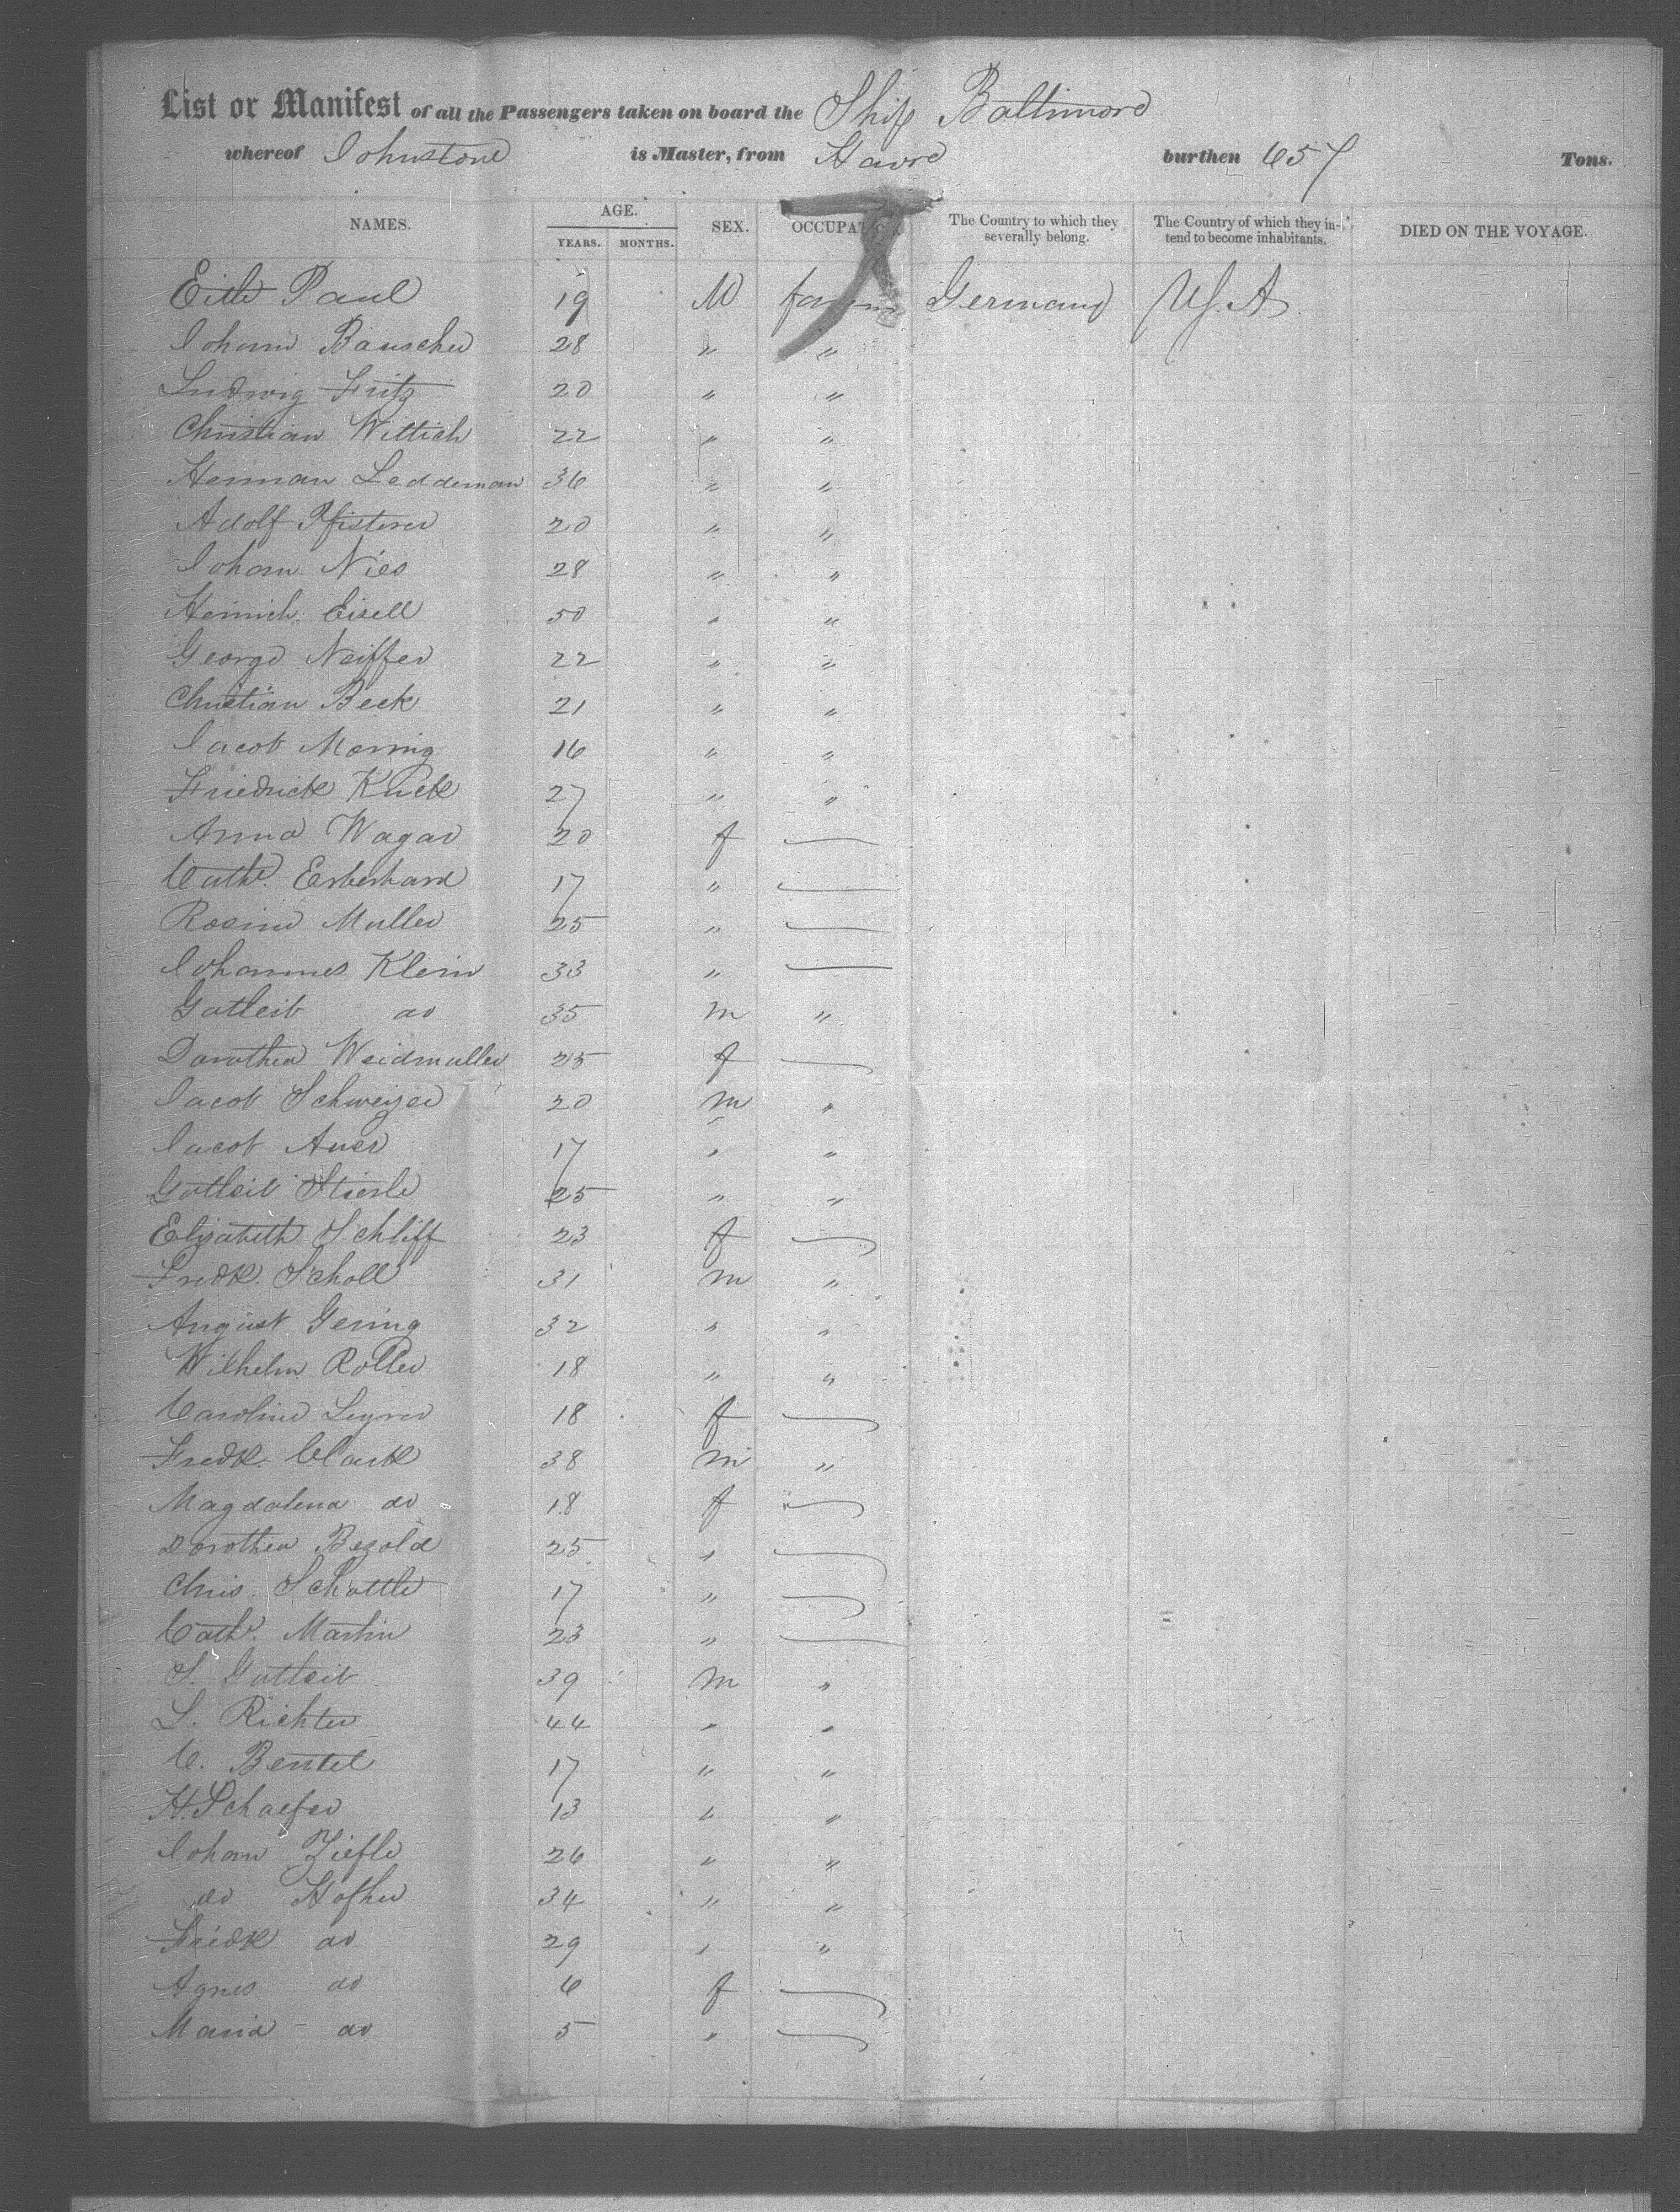 List or Manifest of all the Passengers taken on board the Ship Baltimore
whereof Johnstone is Master, from Havre burthen 657 Tons.
NAMES. AGE. YEARS. MONTHS. SEX. OCCUPATION. The Country to which they severally belong. The Country of which they intend to become inhabitants. DIED ON THE VOYAGE.
Paul 19 M farm Germany U.S.A.
Johann Bauscher 28 " "
Ludwig Fritz 20 " "
Christian Wittich 22 " "
Herman Leddeman 36 " "
Adolf Pfisterer 20 " "
Johann Nies 28 " "
Heinrich Eisell 50 " "
George Neiffer 22 " "
Christian Beck 21 " "
Jacob Morring 16 " "
Friedrick Kuck 27 " "
Anna Wagar 20 f —
Cathe. Erberhard 17 " —
Rosine Muller 25 " —
Johannes Klein 33 " —
Gotleib do 35 m "
Dorothea Weidmuller 25 f —
Jacob Schweizer 20 m "
Jacob Auer 17 " "
Gotleib Stierle 25 " "
Elizabeth Schliff 23 f —
Fredk. Scholl 31 m "
August Gering 32 " "
Wilhelm Roller 18 " "
Caroline 18 f —
Fredk. Clark 38 m "
Magdalena do 18 f —
Dorothea Bezold 25 " —
Chris. Schottle 17 " —
Cathe. Martin 23 " —
S. Gotleib 39 m "
L. Richter 44 " "
C. Bentel 17 " "
H. Schaefer 13 " "
Johann Ziefle 26 " "
do Hofher 34 " "
Fredk do 29 " "
Agnes do 6 f —
Maria do 5 " —